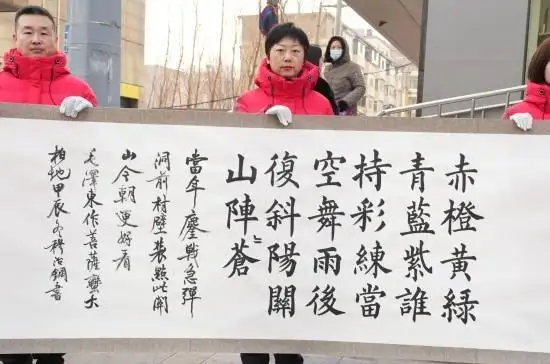 赤橙黄綠
青藍紫誰
持彩練當
空舞雨後
復斜陽關
山陣〻蒼
當年鏖戰急彈
洞前村壁裝點此關
山今朝更好看
毛澤東作菩薩蠻大
柏地甲辰冬穆治鋼書